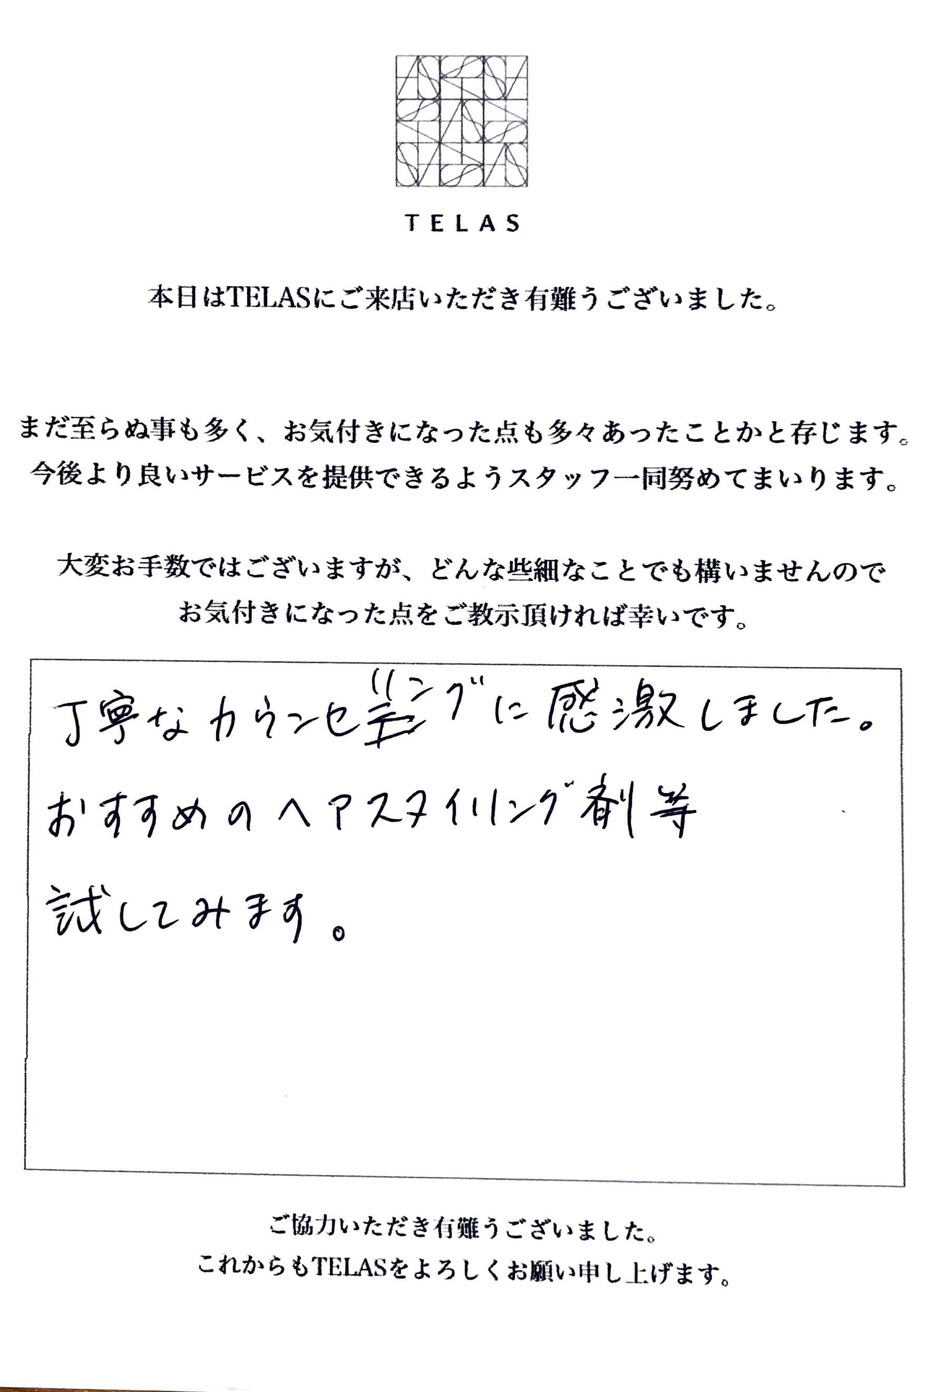 TELAS
本日はTELASにご来店いただき有難うございました。
まだ至らぬ事も多く、お気付きになった点も多々あったことかと存じます。
今後より良いサービスを提供できるようスタッフ一同努めてまいります。
大変お手数ではございますが、どんな些細なことでも構いませんので
お気付きになった点をご教示頂ければ幸いです。
丁寧なカウンセリングに感激しました。
おすすめのヘアスタイリング剤等
試してみます。
ご協力いただき有難うございました。
これからもTELASをよろしくお願い申し上げます。